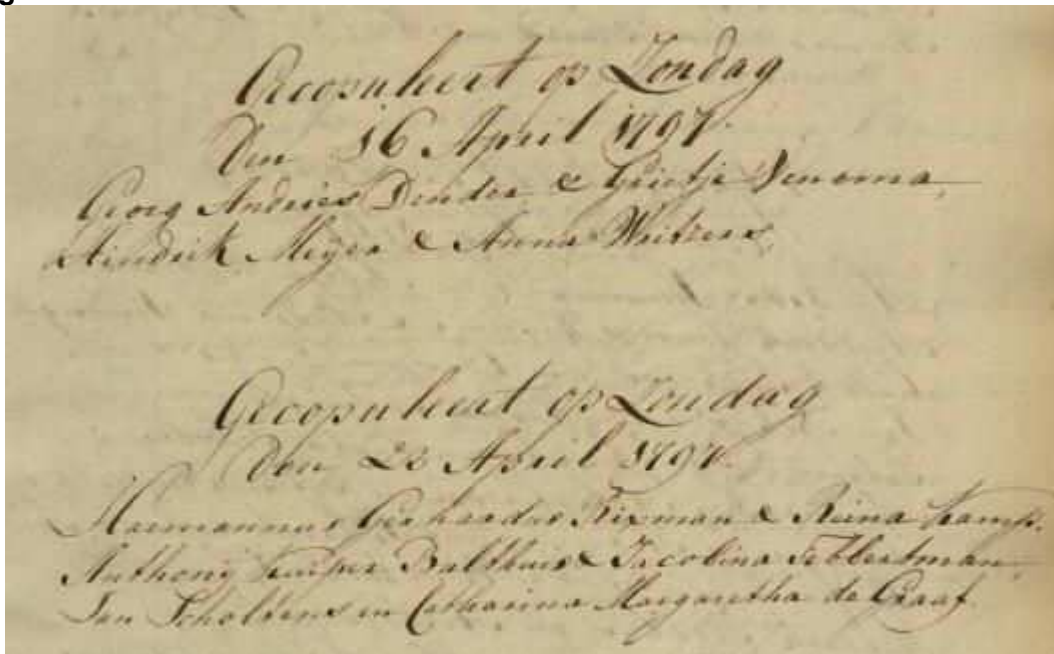 Gecopuleert op Zondag
Den 16 April 1797.
Georg Andries Dender & Grietje Venema,
Hindrik Meyer & Anna Weitzers,
Gecopuleert op Zondag
Den 23 April 1797.
Harmannus Gerhardus Tixman & Reina Kamp.
Anthony Kuiper Balthuis & Jacobina Tebbertman,
Jan Scholtens en Catharina Margaretha de Graaf.